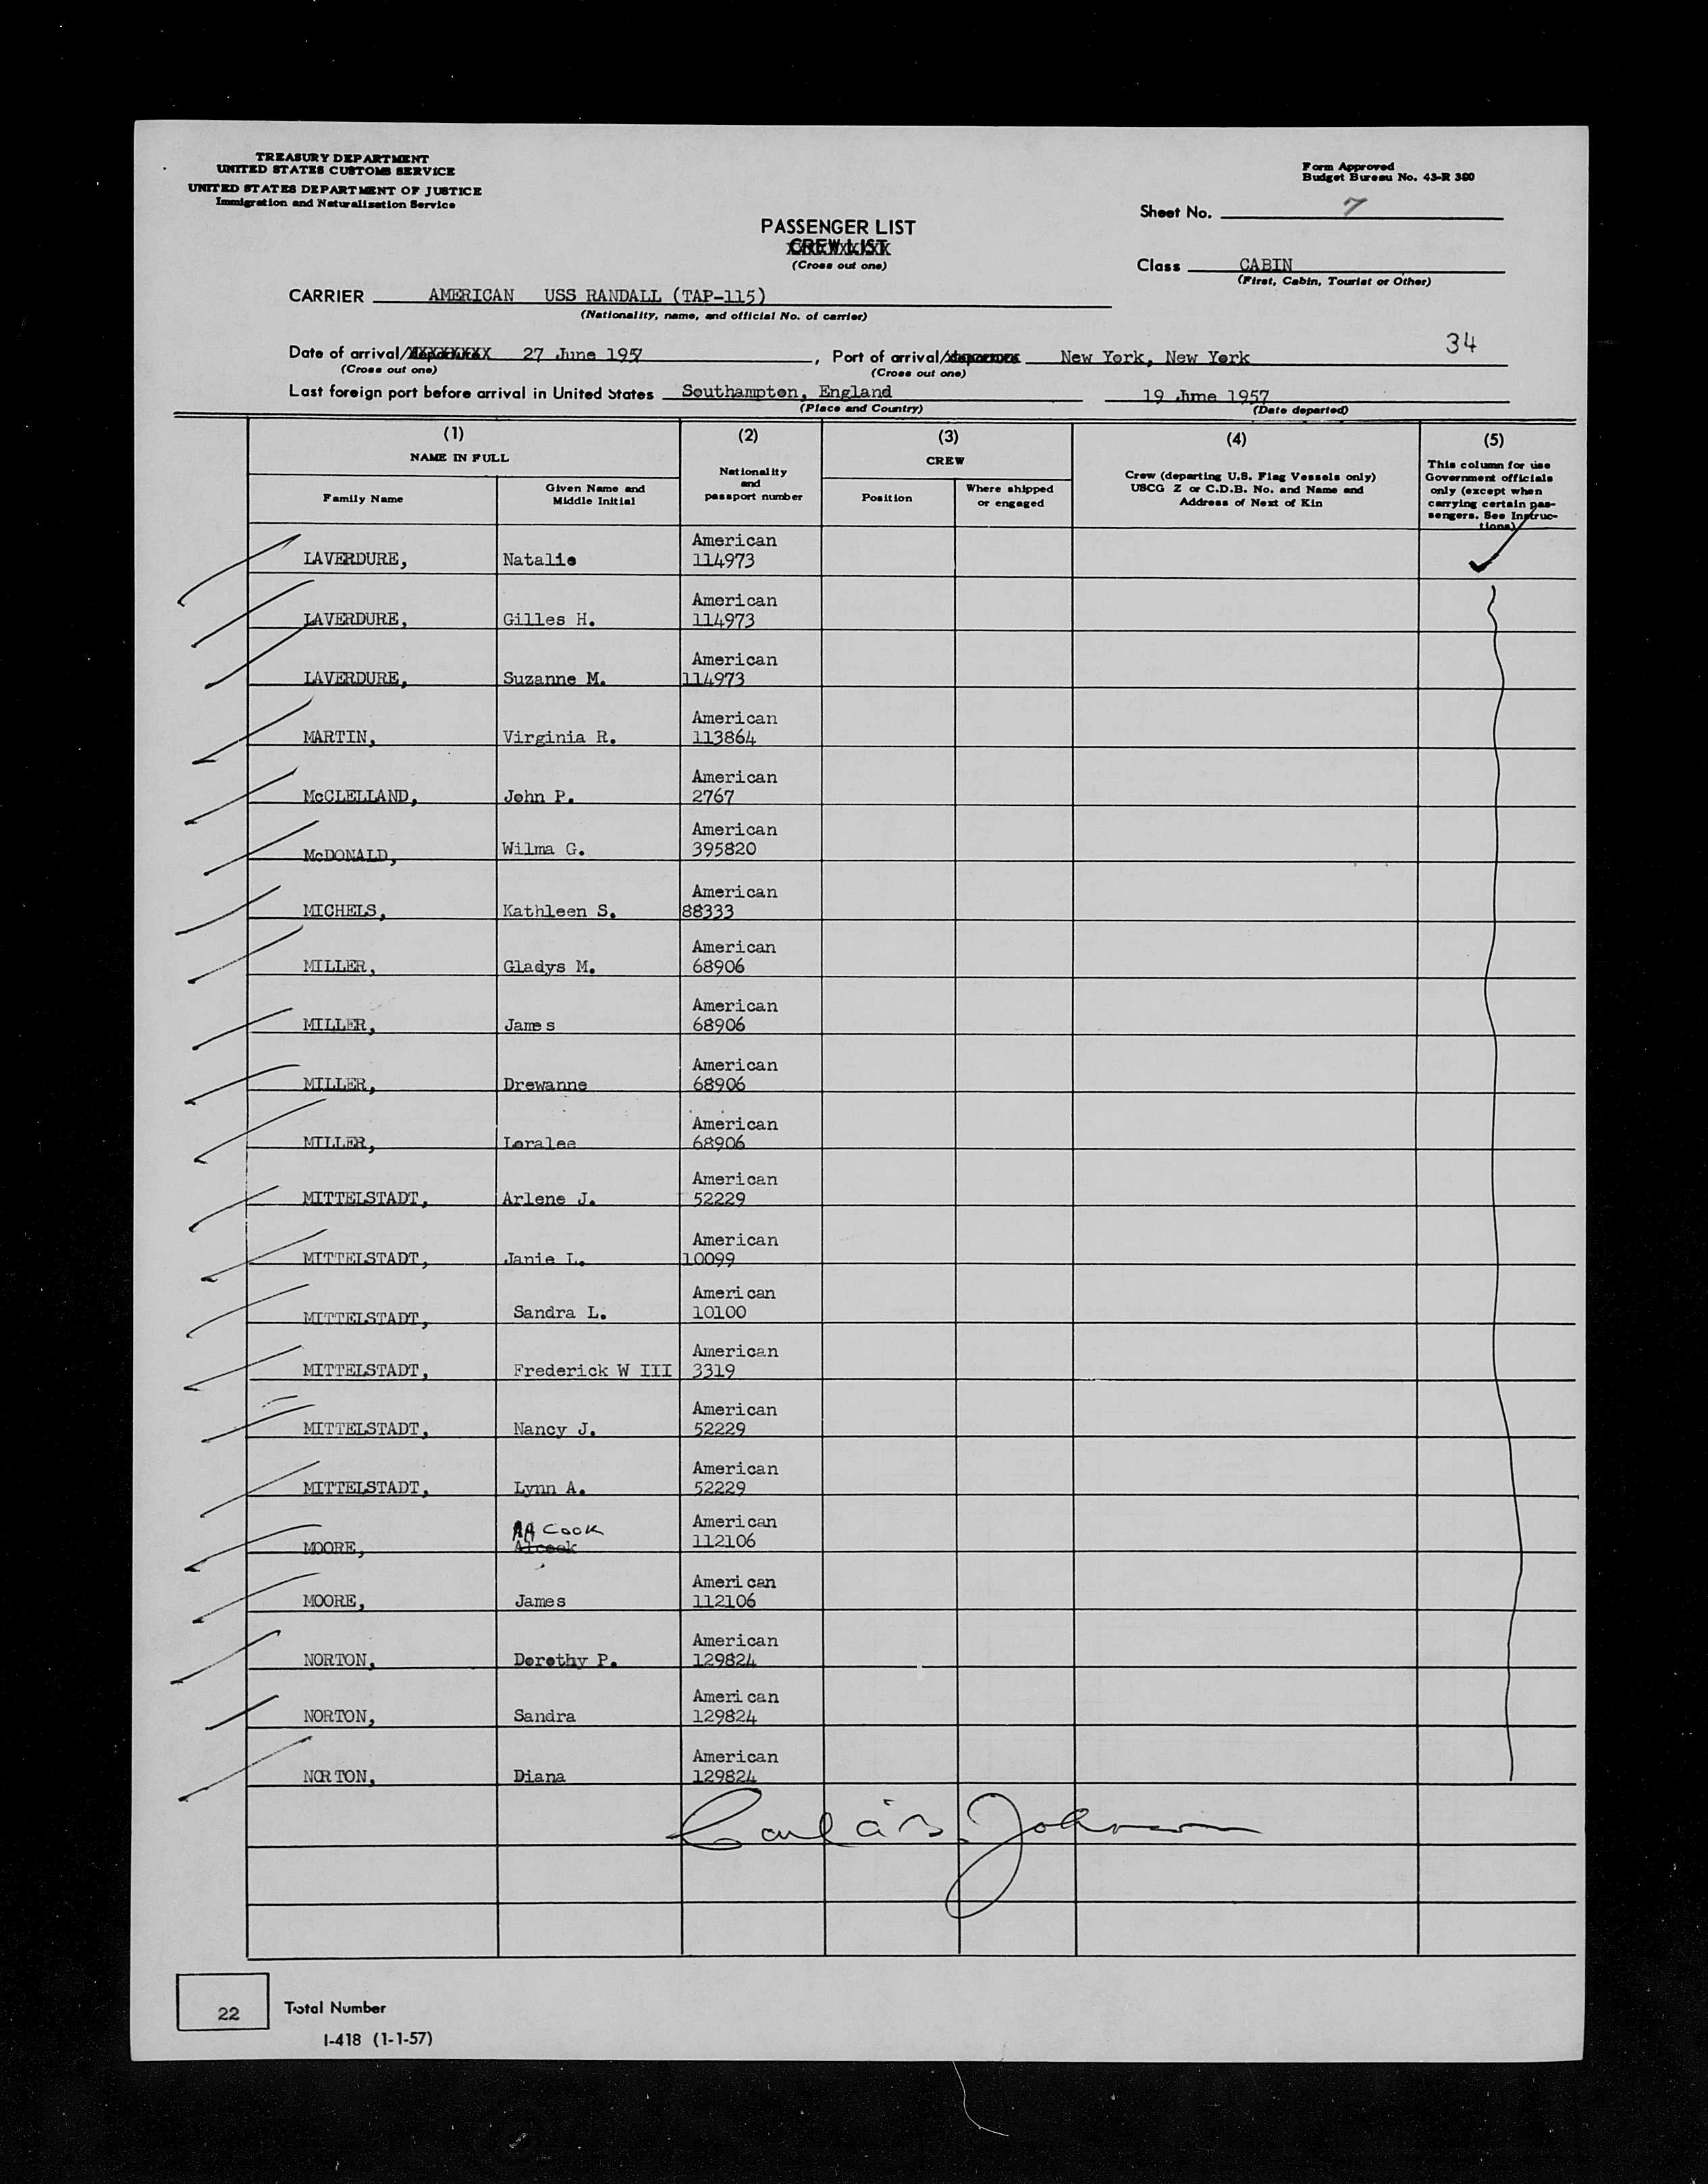 TREASURY DEPARTMENT
UNITED STATES CUSTOMS SERVICE
UNITED STATES DEPARTMENT OF JUSTICE
Immigration and Naturalization Service
Form Approved
Budget Bureau No. 43-R 380
Sheet No. 7
PASSENGER LIST
CREW LIST
(Cross out one)
Class CABIN
(First, Cabin, Tourist or Other)
CARRIER AMERICAN USS RANDALL (TAP-115)
(Nationality, name, and official No. of carrier)
34
Date of arrival/departure 27 June 1957, Port of arrival/departure New York, New York
(Cross out one) (Cross out one)
Last foreign port before arrival in United States Southampton, England 19 June 1957
(Place and Country) (Date departed)
(1) (2) (3) (4) (5)
NAME IN FULL
Family Name
Given Name and
Middle Initial
Nationality
and
passport number
CREW
Position
Where shipped
or engaged
Crew (departing U.S. Flag Vessels only)
USCG Z or C.D.B. No. and Name and
Address of Next of Kin
This column for use
Government officials
only (except when
carrying certain pas-
sengers. See Instruc-
tions)
American
LAVERDURE, Natalie 114973
American
LAVERDURE, Gilles H. 114973
American
LAVERDURE, Suzanne M. 114973
American
MARTIN, Virginia R. 113864
American
McCLELLAND, John P. 2767
American
McDONALD, Wilma G. 395820
American
MICHELS, Kathleen S. 88333
American
MILLER, Gladys M. 68906
American
MILLER, James 68906
American
MILLER, Drewanne 68906
American
MILLER, Loralee 68906
American
MITTELSTADT, Arlene J. 52229
American
MITTELSTADT, Janie L. 10099
American
MITTELSTADT, Sandra L. 10100
American
MITTELSTADT, Frederick W III 3319
American
MITTELSTADT, Nancy J. 52229
American
MITTELSTADT, Lynn A. 52229
AA COOK American
MOORE, Alcook 112106
American
MOORE, James 112106
American
NORTON, Dorothy P. 129824
American
NORTON, Sandra 129824
American
NORTON, Diana 129824
Johnson
22 Total Number
I-418 (1-1-57)